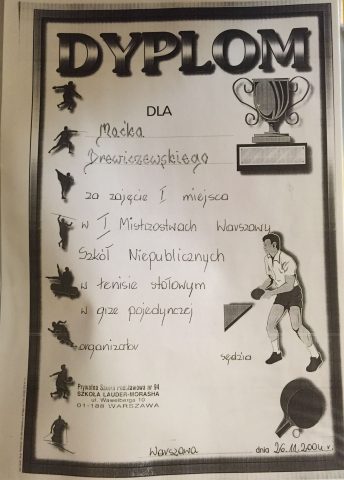 DYPLOM
DLA
Maćka
Drewiczewskiego
za zajęcie I miejsca
w I Mistrzostwach Warszawy
Szkół Niepublicznych
w tenisie stołowym
w grze pojedynczej
organizator
sędzia
Prywatna Szkoła Podstawowa nr 94
SZKOŁA LAUDER-MORASHA
ul. Wawelberga 10
01-188 WARSZAWA
Warszawa
dnia 26.11.2004 r.